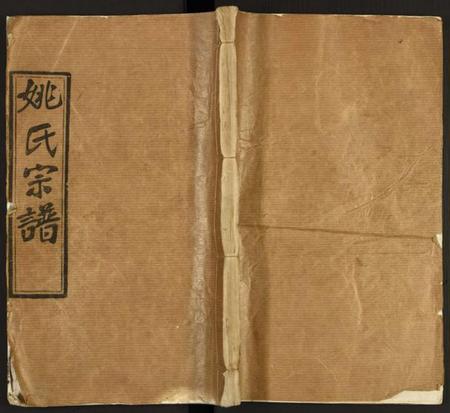 姚氏宗譜